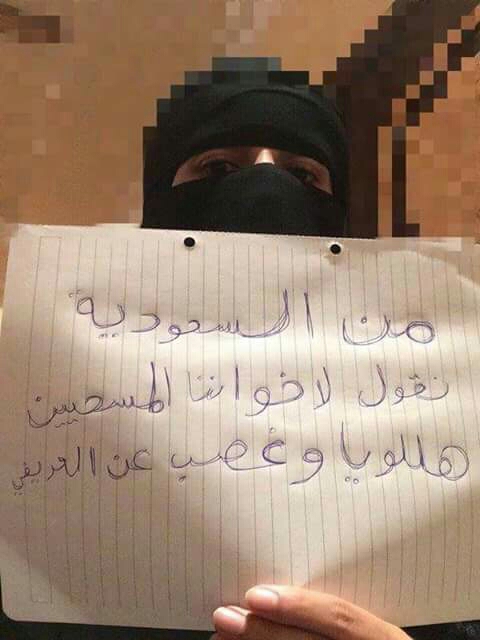 من السعودية
نقول لاخواننا المسحيين
هللويا وغصب عن العريفي